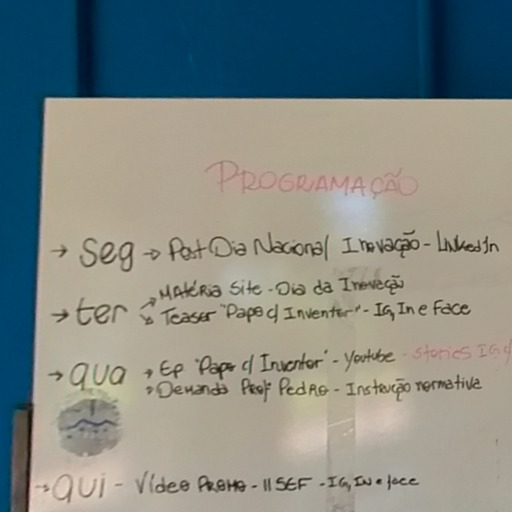 PROGRAMAÇÃO
→ seg → Post Dia Nacional Inovação - LinkedIn
→ MATÉRIA Site - Dia da Inovação
→ ter
↘ TEASER "Papo c/ Inventor" - IG, In e Face
→ qua → Ep "Papo c/ Inventor" - Youtube - Stories IG
→ Demanda Profº Pedro - Instrução normativa
→ qui - Vídeo PROMO - II SEF - IG, IN e face